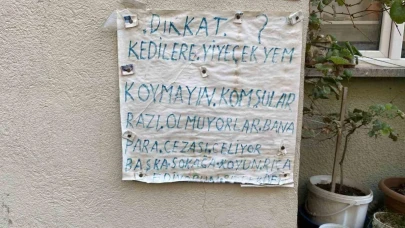 .DİKKAT. ?
KEDİLERE.YİYEÇEK YEM
KOYMAYIN.KOMŞULAR
RAZI.OLMUYORLAR.BANA
PARA.CEZASI.GELİYOR
BAŞKA.SOKAĞA.KOYUN.RİCA